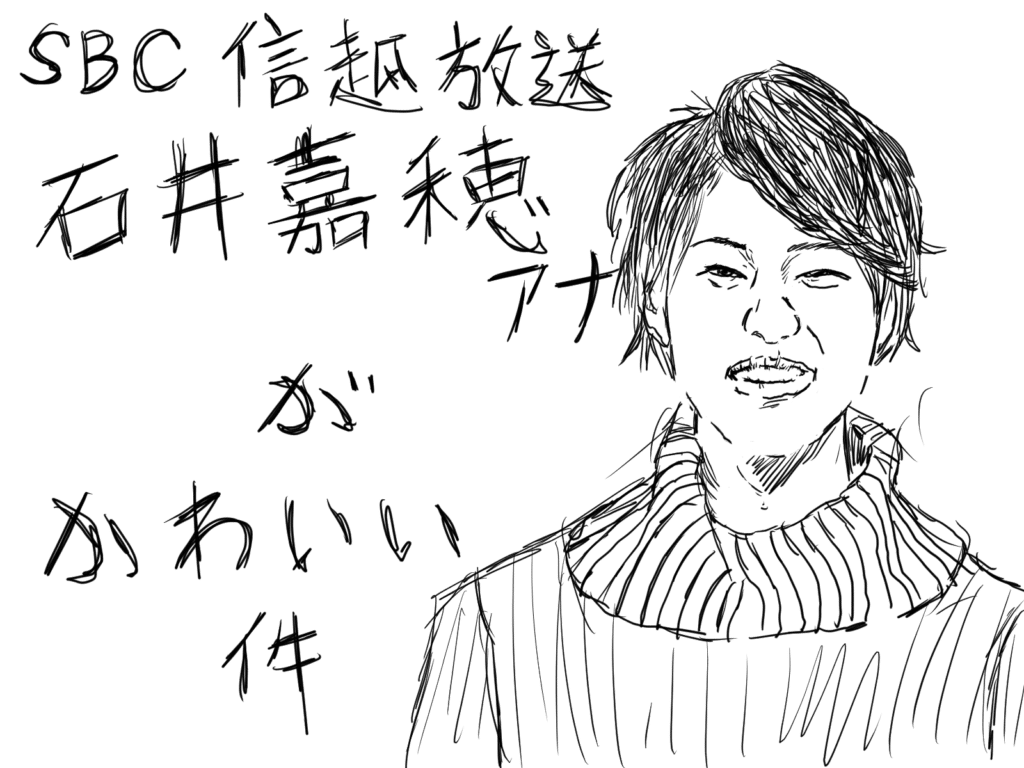 SBC 信越放送
石井嘉穂
アナ
が
かわいい
件